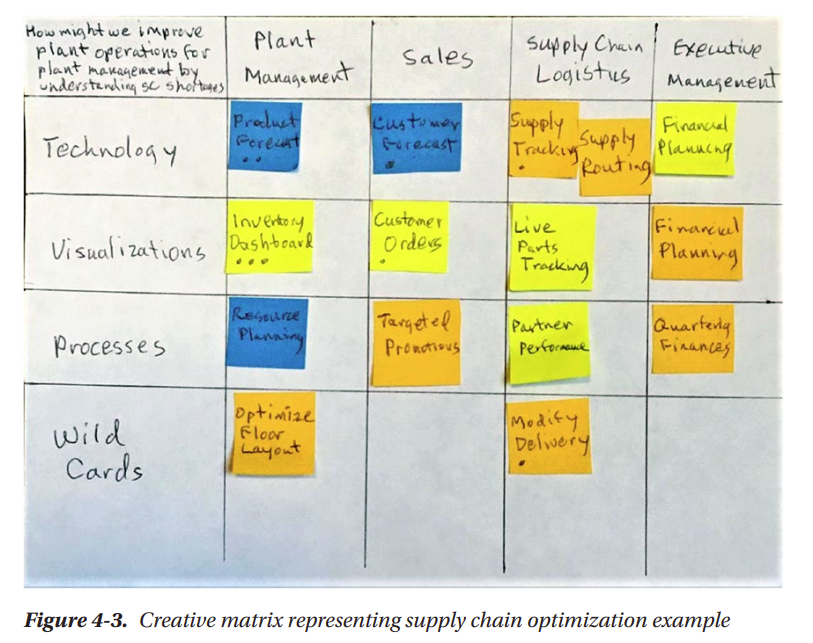 How might we improve
plant operations for
plant management by
understanding sc shortages
Plant
Management
Sales
Supply Chain
Logistics
Executive
Management
Technology
Product
Forecast
Customer
Forecast
Supply
Tracking
Supply
Routing
Financial
Planning
Visualizations
Inventory
Dashboard
Customer
Orders
Live
Parts
Tracking
Financial
Planning
Processes
Resource
Planning
Targeted
Promotions
Partner
Performance
Quarterly
Finances
Wild
Cards
Optimize
Floor
Layout
Modify
Delivery
Figure 4-3. Creative matrix representing supply chain optimization example